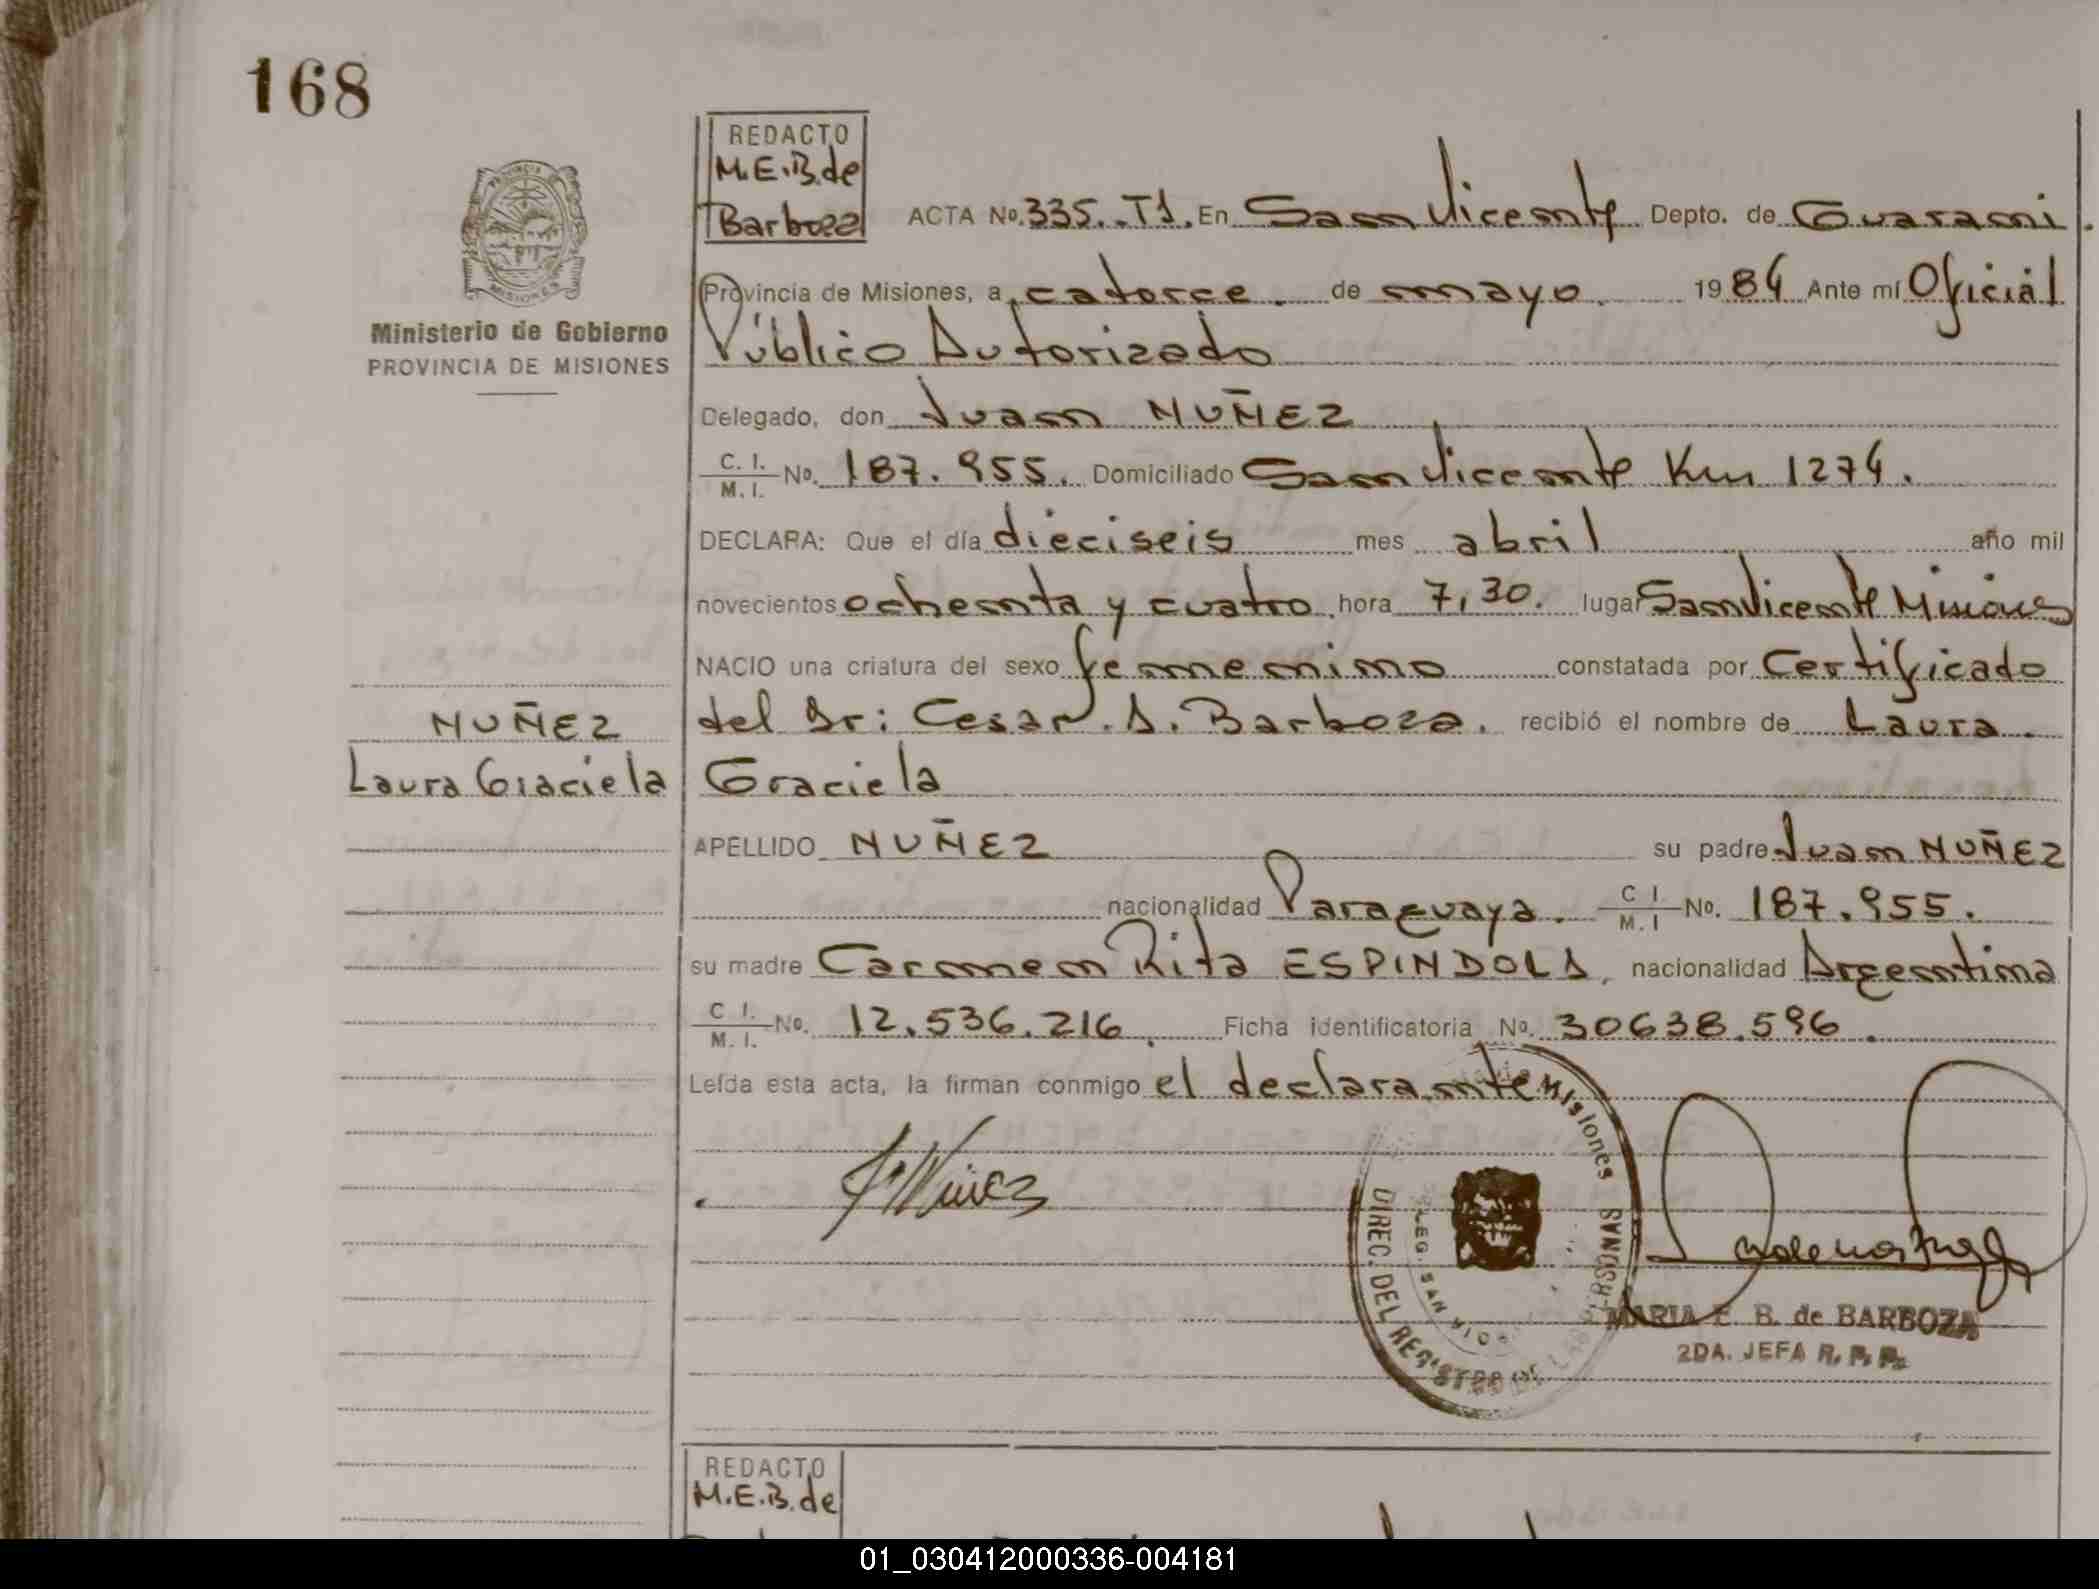 168
REDACTO
M.E.B. de
Barboza
ACTA No. 335. T1. En San Vicente Depto. de Guarani.
Provincia de Misiones, a catorce. de mayo. 1984 Ante mí Oficial
Público Autorizado
Delegado, don Juan NUÑEZ
C. I. / M. I. No. 187.955. Domiciliado San Vicente Km 1274.
DECLARA: Que el día dieciseis mes abril año mil
novecientos ochenta y cuatro hora 7,30. lugar San Vicente Misiones
NACIO una criatura del sexo femenino constatada por Certificado
del Dr: Cesar. A. Barboza. recibió el nombre de Laura.
Graciela
APELLIDO NUÑEZ su padre Juan NUÑEZ
nacionalidad Paraguaya. C I. / M. I No. 187.955.
su madre Carmen Rita ESPINDOLA, nacionalidad Argentina
C I. / M. I. No. 12.536.216. Ficha identificatoria No. 30638.596.
Leída esta acta, la firman conmigo el declarante
PROVINCIA DE
MISIONES
Ministerio de Gobierno
PROVINCIA DE MISIONES
NUÑEZ
Laura Graciela
J. Nuñez
Misiones
DIREC. DEL REGISTRO DE LAS PERSONAS
DELEG. SAN VICENTE
MARIA E. B. de BARBOZA
2DA. JEFA R. P. P.
REDACTO
M.E.B. de
01_030412000336-004181